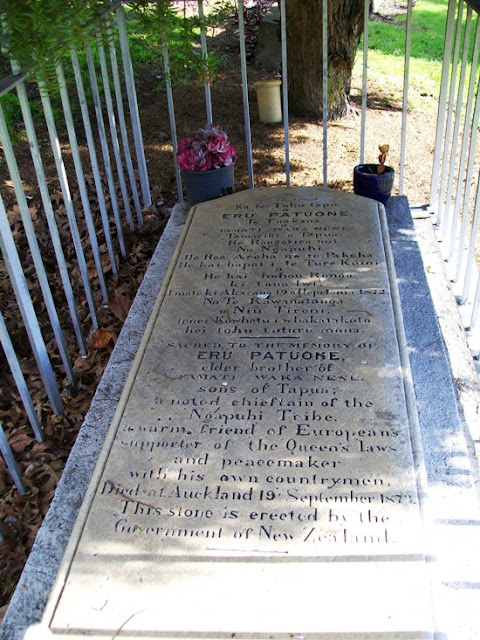 Ko te Tohu tapu
ERU PATUONE
Te Tuakana
TAMATI WAKA NENE
Tamariki o Tapua
He Rangatira nui
No Ngapuhi
He Hoa Aroha no te Pakeha
He kai hapai i te Ture Kuini
a
He kai hohou Rongo
ki tona Iwi
I mate ki Akarana 19 o Hepetema 1872
Na Te Kawanatanga
o Niu Tireni
tenei Kowhatu i whakaakoto
hei tohu
SACRED TO THE MEMORY OF
ERU PATUONE,
elder brother of
TAMATI WAKA NENE,
sons of Tapua;
a noted chieftain of the
Ngapuhi Tribe.
a warm friend of Europeans
supporter of the Queen's laws
and peacemaker
with his own countrymen,
Died at Auckland 19th September 1872
This stone is erected by the
Government of New Zealand.